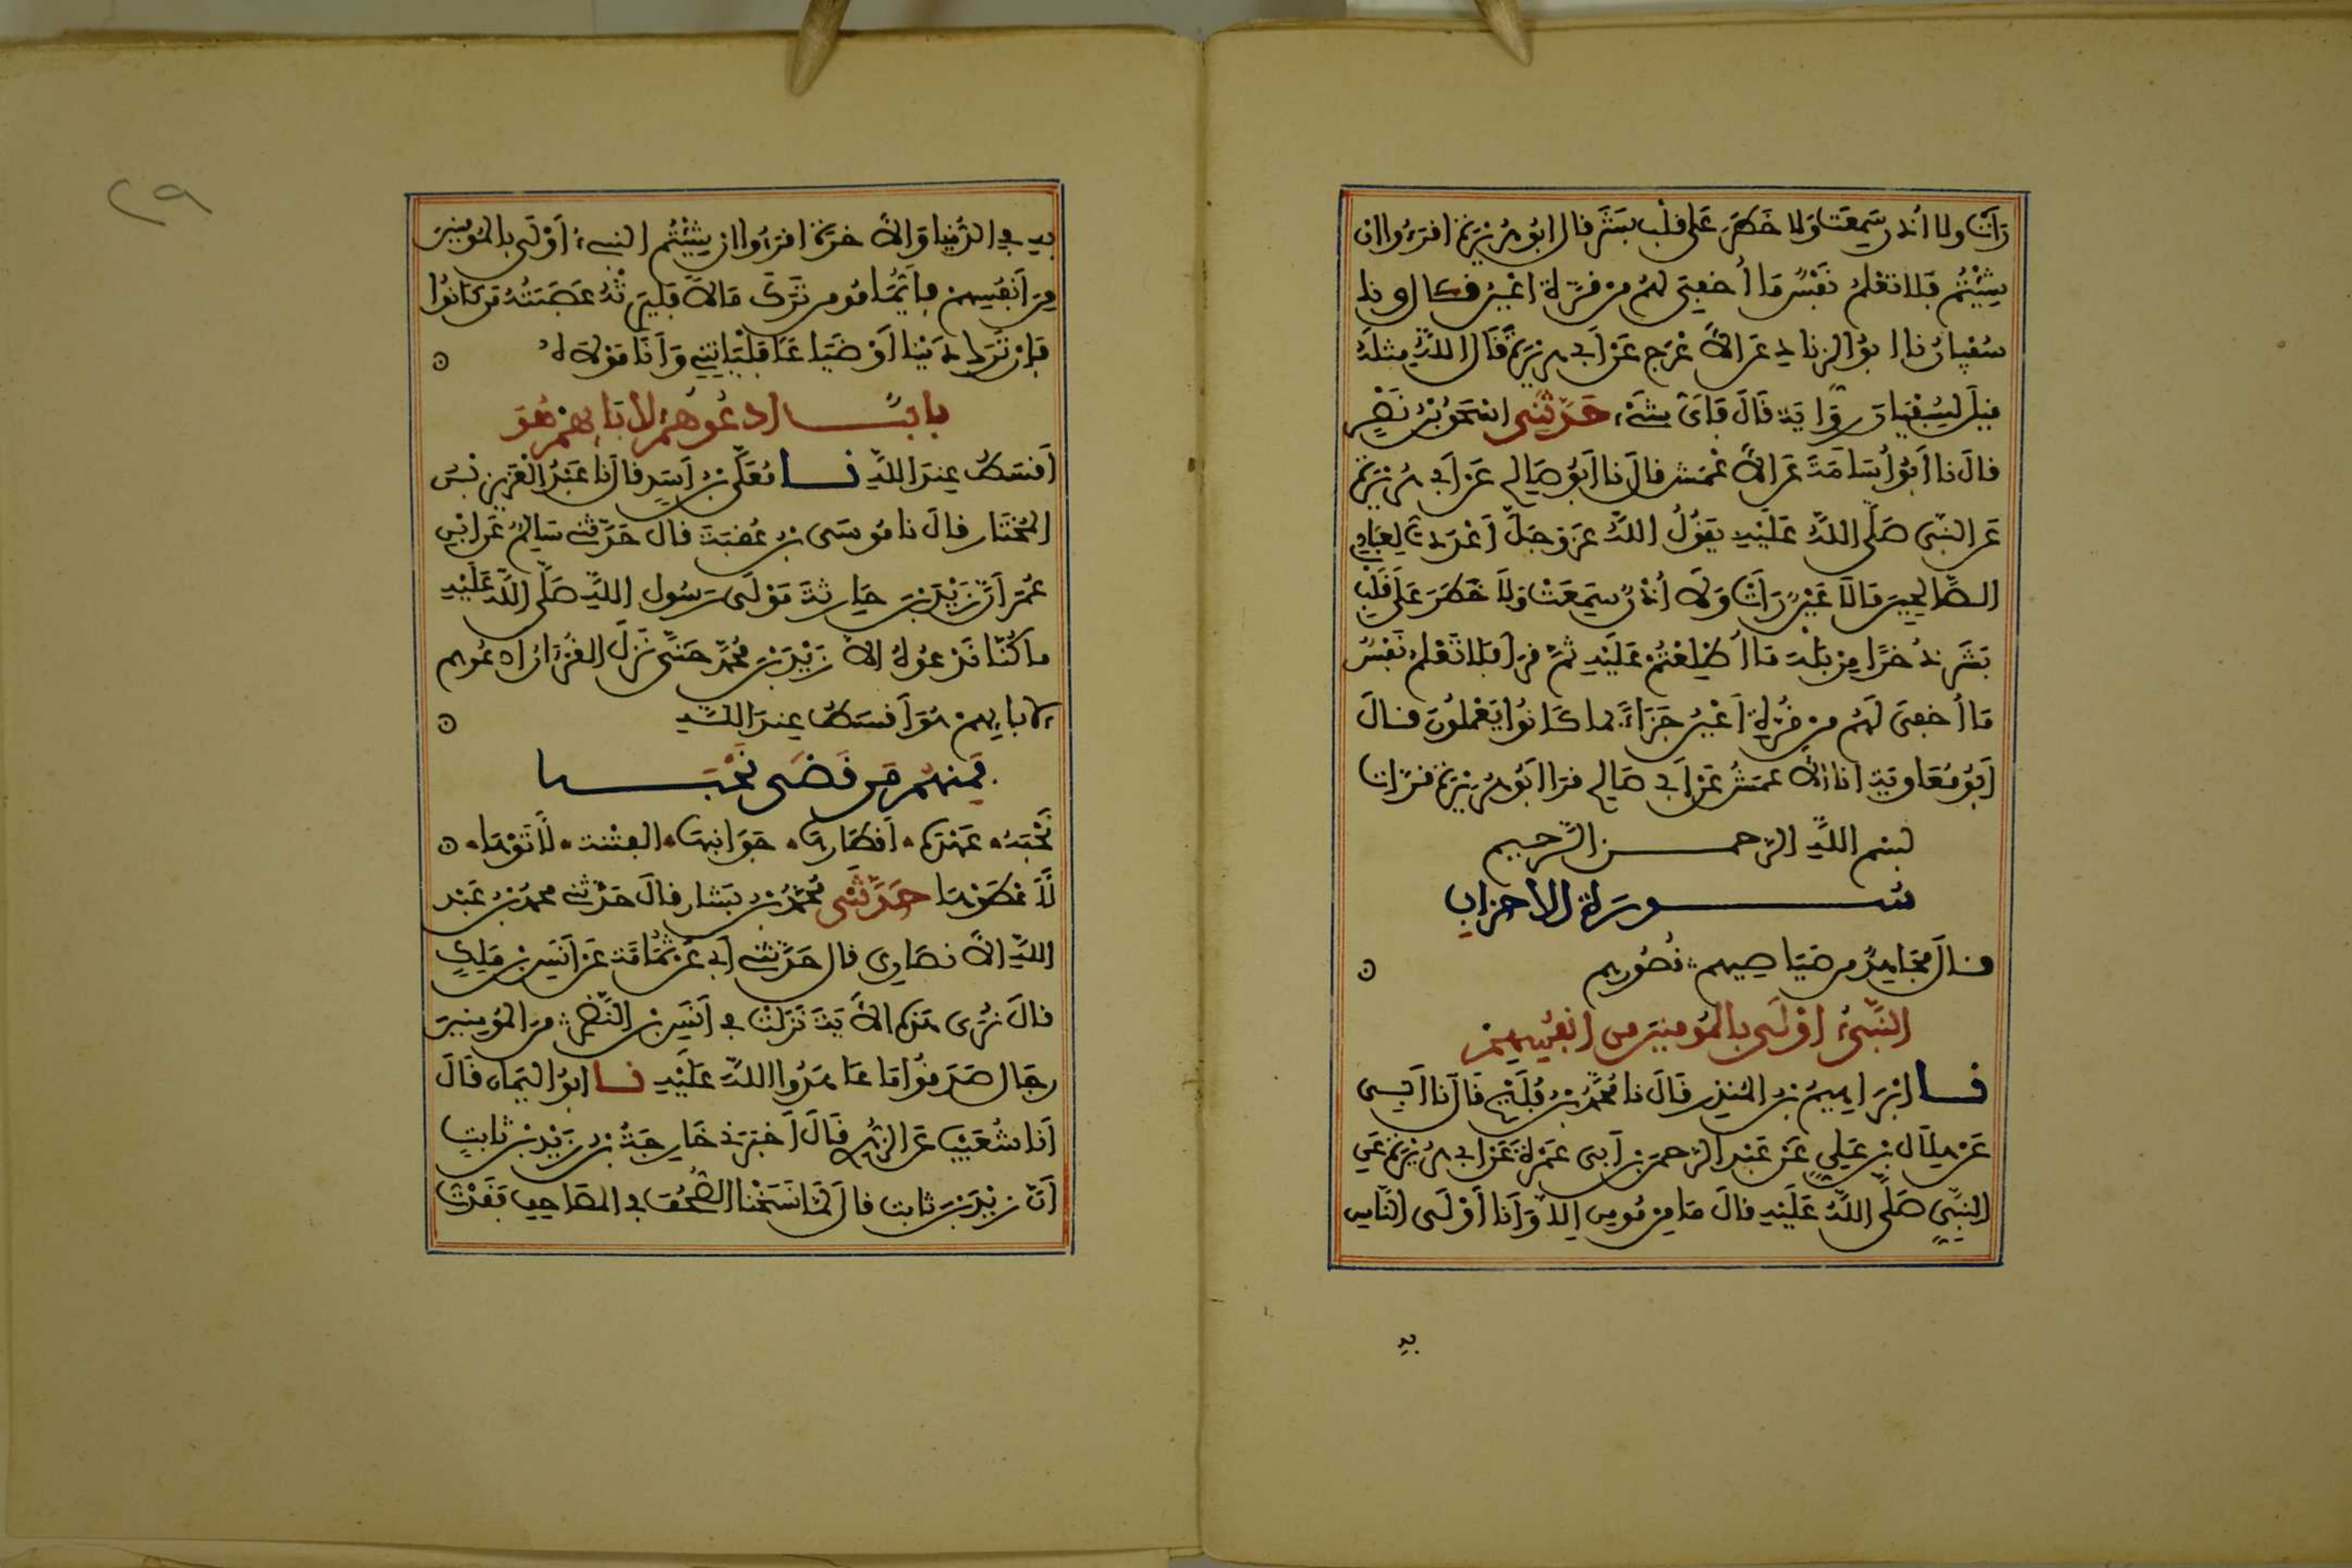 رَأَتْ ولا أُذن سَمِعَتْ وَلا خَطَرَ عَلى قلْب بَشَر قال ابُو هُرَيْرَةَ اقرَءُوا ان
شِيْتُم فَلا تَعْلَمُ نَفْسٌ مَا أُخفِيَ لهُم من قُرَّةِ أعْيُنٍ قال ونا
سُفيانُ نا ابُو الزناد عَن الأَعْرَج عَنْ أبي هريْرَةَ قَالَ اللهُ مثلَهُ
قيل لِسُفيان رِوَايَةً قَالَ فَأَيّ شَيْء حَدَّثَنِي اسْحَقُ بْنُ نَصْرٍ
قالَ نا أَبُو أُسَامَةَ عَن الأَعْمَش قالَ نا أَبُو صَالِح عَنْ أبي هُرَيْرَةَ
عَن النَّبِي صَلَّى اللهُ عَلَيْهِ يَقُولُ اللهُ عَزَّ وَجَلَّ أَعْدَدتُّ لِعِبَادِي
الصَّالِحِينَ مَا لَا عَيْنٌ رَأَتْ وَلَا أُذُنٌ سَمِعَتْ وَلَا خَطَرَ عَلَى قَلْبِ
بَشَرٍ ذُخْرًا مِنْ بَلْهَ مَا اُطْلِعْتُمْ عَلَيْهِ ثُمَّ قرَأ فَلَا تَعْلَمُ نَفْسٌ
مَا أُخْفِيَ لَهُم مِن قُرَّةِ أَعْيُنٍ جَزَاءً بما كَانُوا يَعْمَلُونَ قال
أَبُو مُعَاوِيَةَ انا الأَعمَشُ عَنْ أَبِي صَالِح قرَأ ابُو هُرَيْرَةَ قُرَّات
بسم اللهِ الرّحمن الرَّحِيم
سُورَة الأحزاب
قال مُجَاهِدٌ مِن صَيَاصِيهِم: قُصُورِهِم
النَّبِيءُ أَوْلَى بالمُومِنِينَ مِن أَنفُسِهِمْ
نا ابْرَاهِيمُ بْنُ المُنْذِر قَالَ نا مُحَمَّدُ بنُ فُلَيْحٍ قَالَ نا أَبِي
عَنْ هِلَال بْن عَلِيٍّ عَنْ عَبْدِ الرّحمَن بْن أَبِي عَمْرَةَ عَنْ أبي هُرَيْرَةَ عَنِ
النَّبِيّ صَلَّى اللهُ عَلَيْهِ قالَ مَا مِن مُومِنٍ إلَّا وَأَنَا أَوْلَى النَّاسِ
بِهِ
٢٩
بِهِ فِي الدُّنيا وَالآخِرَةِ اقرَءُوا إن شِيْتُم النبيءُ أَوْلَى بالمُومِنِينَ
مِنَ أَنفُسِهِمْ فأيُّمَا مُومِنٍ تَرَكَ مَالًا فَلْيَرِثْهُ عَصَبَتُهُ مَن كَانُوا
فَإن تَرَكَ دَيْنا أَوْ ضَيَاعًا فَلْيَاتِنِي وَأَنَا مَوْلَاهُ
بابٌ ادعُوهُمْ لأبَائِهِمْ هُوَ
أَقْسَطُ عِندَ اللهِ نا مُعَلَّى بْنُ أَسَدٍ قالَ نا عَبْدُ العَزِيز بْنُ
المُخْتَار قالَ نا مُوسَى بْنُ عُقبَةَ قالَ حَدّثني سَالِمٌ عَن ابْنِ
عُمَرَ أَنَّ زَيْدَ بْنَ حَارِثَةَ مَوْلَى رَسُولِ اللهِ صَلَّى اللهُ عَلَيْهِ
ما كُنّا نَدْعُوهُ الا زَيْدَ بْنَ مُحَمّدٍ حَتَّى نَزَلَ القُرْآنُ ادعُوهم
لآبايِهِمْ هُوَ أَقسَطُ عِندَ اللهِ
فَمِنْهُم مَن قَضَى نَحْبَهُ
نَحْبَهُ عَهْدَهُ أَقطَارِهَا جَوَانِبِهَا الفِتْنَة لَأَتَوْهَا
لَأَعْطَوْهَا حَدَّثَنِي مُحَمّدُ بْنُ بَشّار قالَ حَدّثني محمدُ بْنُ عَبْدِ
اللهِ الأنصَاري قال حَدَّثَنِي أبي عَنْ ثُمَامَةَ عَنْ أَنَسِ بْنِ مَلِكٍ
قالَ نُرَى هَذِهِ الآيَةَ نَزَلَتْ في أَنَسِ بْنِ النَّضْرِ: مِنَ المُومِنِينَ
رِجَالٌ صَدَقُوا مَا عَاهَدُوا اللهَ عَلَيْهِ نا ابُو اليَمَانِ قَالَ
أَنا شُعَيْبٌ عَنِ الزُّهْرِي قَالَ أَخْبَرَنِي خَارِجَةُ بْنُ زَيْدِ بْنِ ثابِتٍ
أَنَّ زَيْدَ بْنَ ثابِت قالَ لَمَّا نَسَخْنَا الصُّحُفَ في المَصَاحِفِ فَقَدْتُ